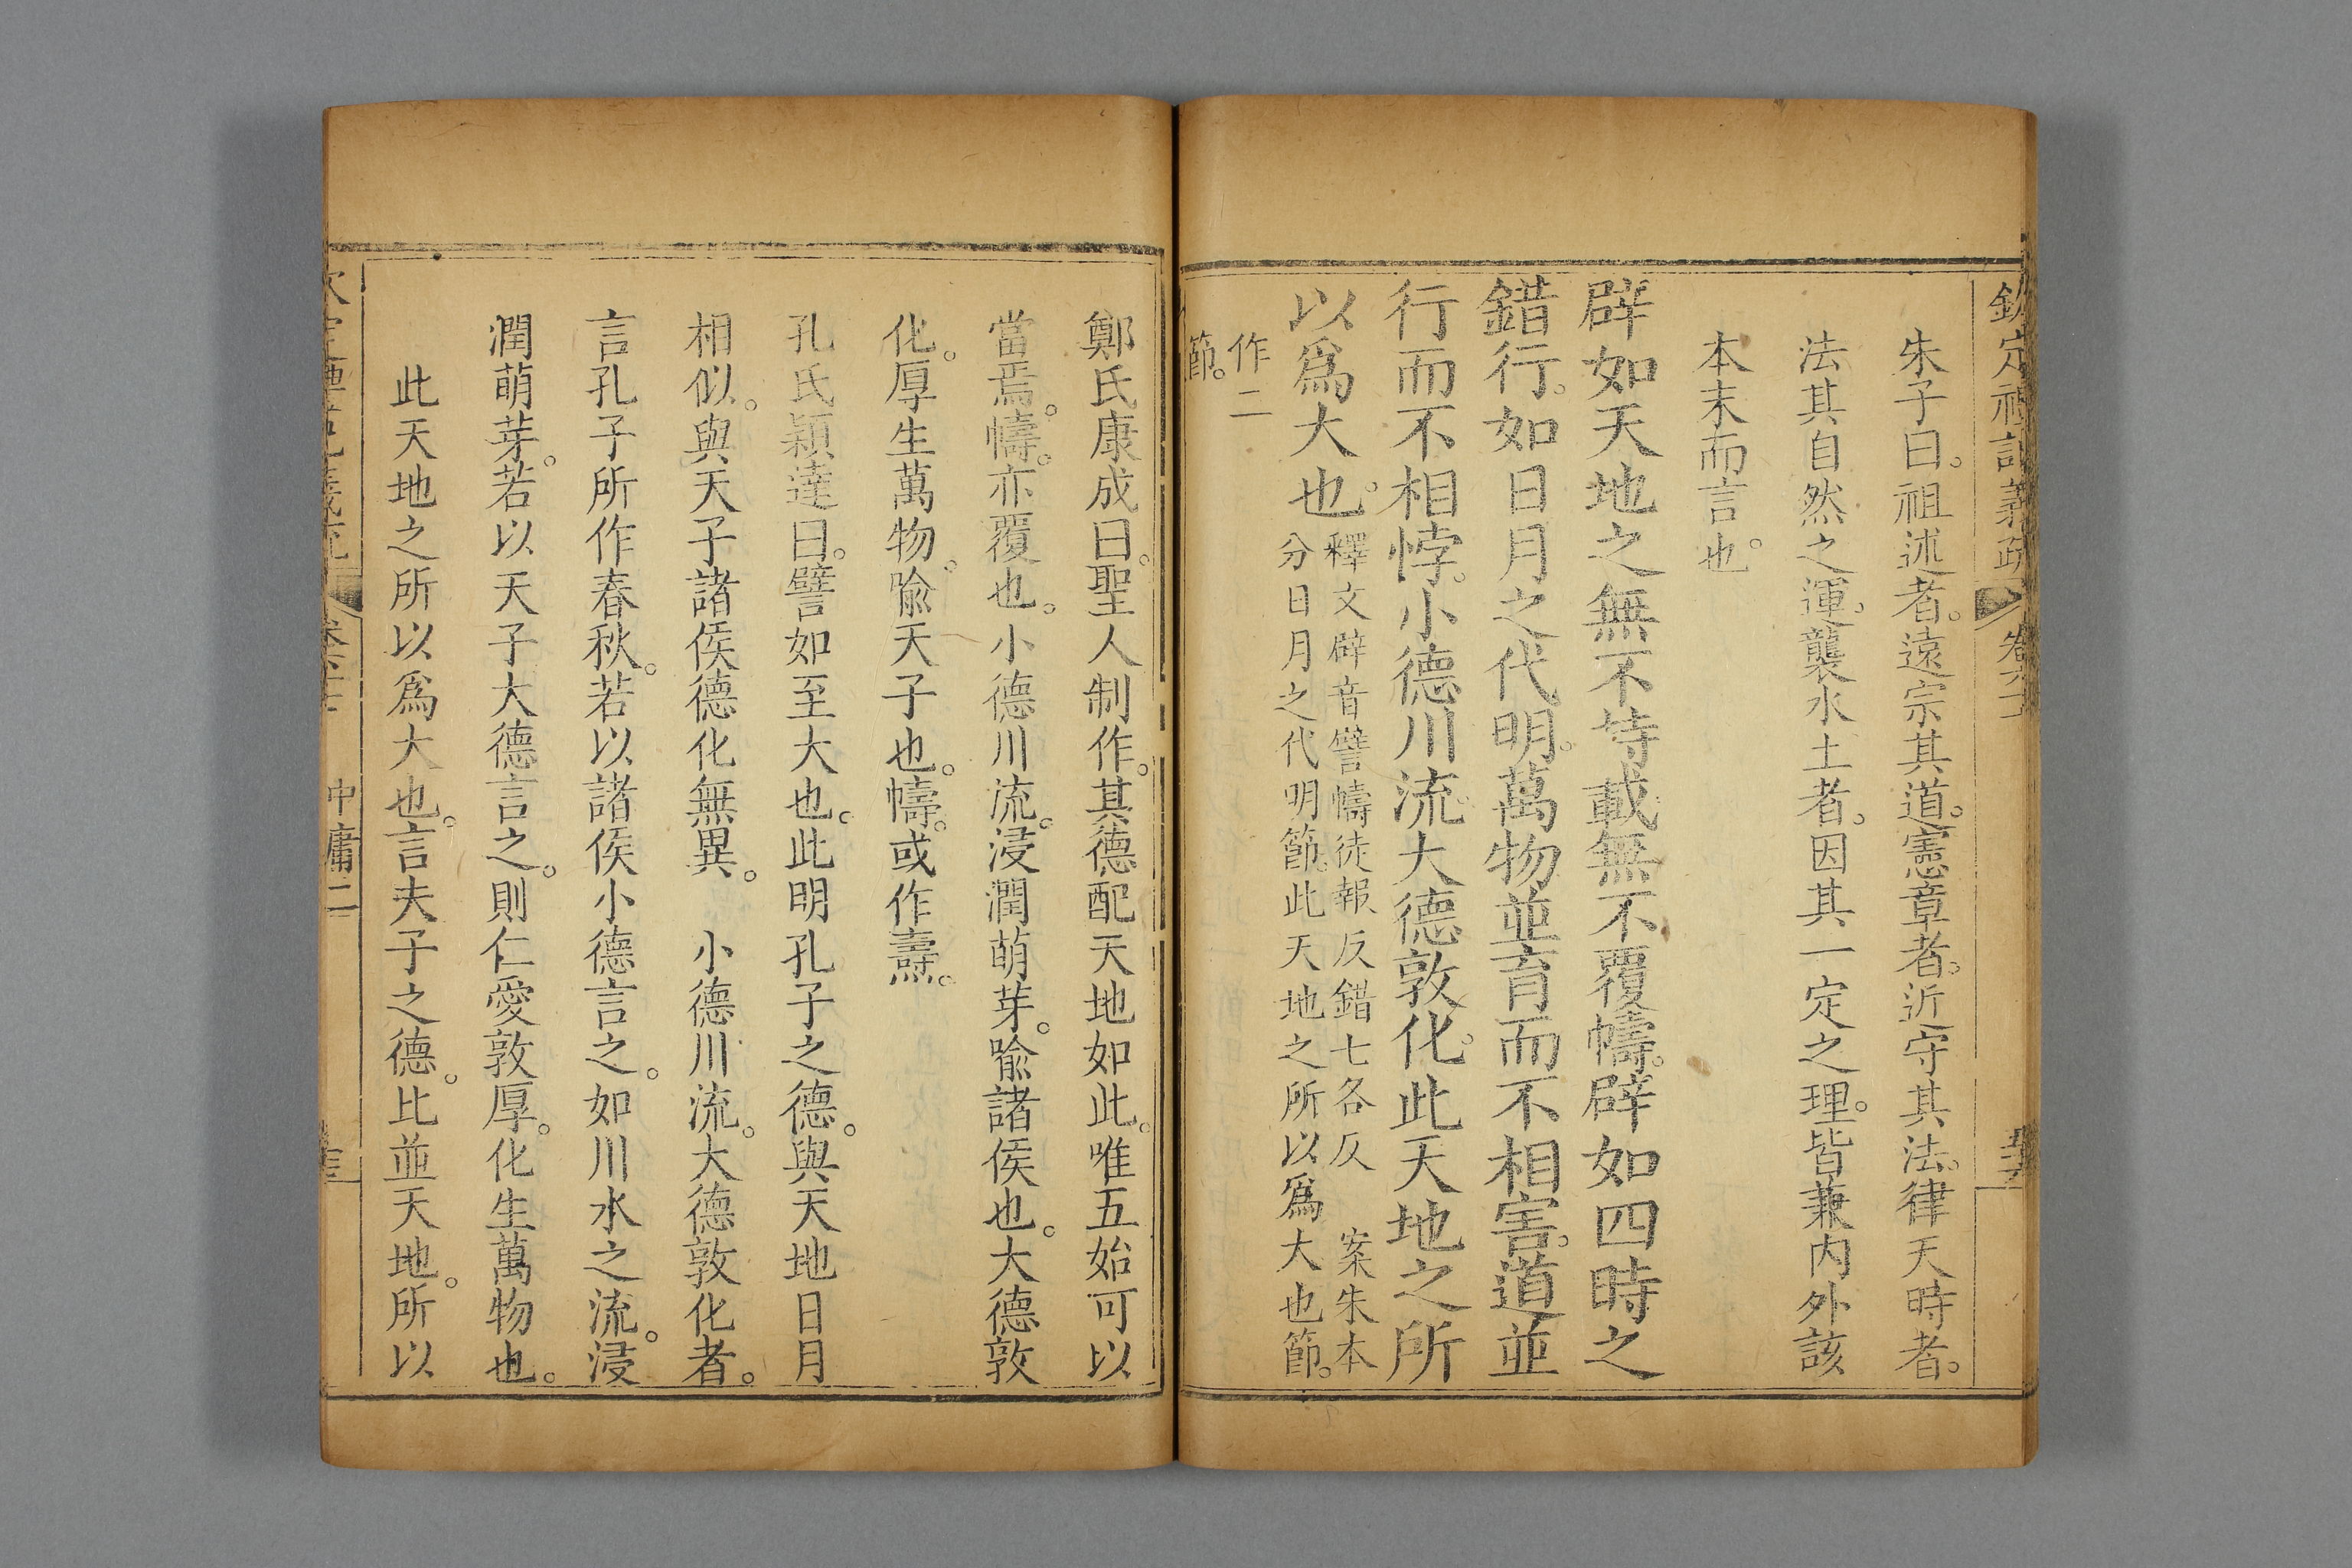 欽定禮記義疏 卷六
朱子曰。祖述者。遠宗其道。憲章者。近守其法。律天時者。
法其自然之運。襲水土者。因其一定之理。皆兼内外該
本末而言也。
辟如天地之無不持載無不覆幬。辟如四時之
錯行。如日月之代明。萬物並育而不相害。道並
行而不相悖。小德川流。大德敦化。此天地之所
以爲大也。
釋文辟音譬幬徒報反錯七各仮 案朱本
分日月之代明節。此天地之所以爲大也節。
作二
節。
鄭氏康成曰。聖人制作。其德配天地如此。唯五始可以
當焉。幬。亦覆也。小德川流。浸潤萌芽。喩諸侯也。大德敦
化。厚生萬物。喩天子也。幬。或作燾。
孔氏穎達曰。譬如至大也。此明孔子之德。與天地日月
相似。與天子諸侯德化無異。 小德川流。大德敦化者。
言孔子所作春秋。若以諸侯小德言之。如川水之流。浸
潤萌芽。若以天子大德言之。則仁愛敦厚。化生萬物也。
此天地之所以爲大也。言夫子之德。比並天地。所以
中庸二